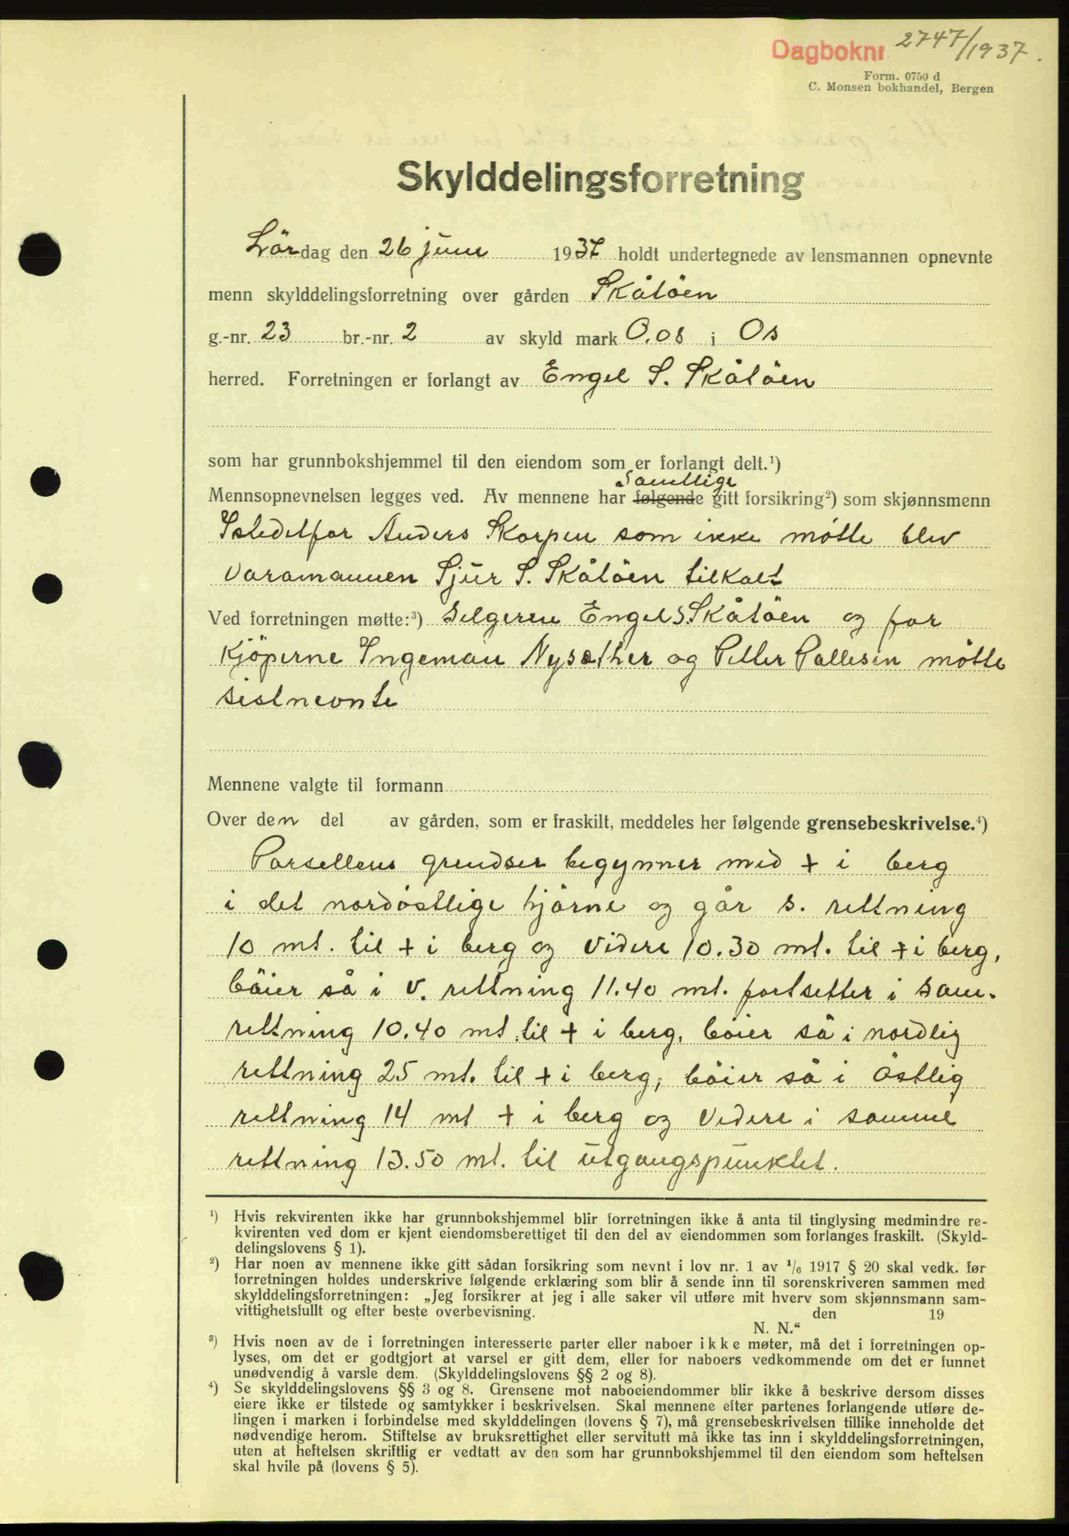 Dagboknr 2747/1937.
Form. 0750 d
C. Monsen bokhandel, Bergen
Skylddelingsforretning
Lördag den 26 juni 1937 holdt undertegnede av lensmannen opnevnte
menn skylddelingsforretning over gården Skåtöen
g.-nr. 23 br.-nr. 2 av skyld mark 0.08 i Os
herred. Forretningen er forlangt av Engel S. Skåtöen
som har grunnbokshjemmel til den eiendom som er forlangt delt.¹)
Samtlige
Mennsopnevnelsen legges ved. Av mennene har følgende gitt forsikring²) som skjønnsmenn
Istedetfor Anders Skorpen som ikke møtte blev
varamannen Sjur S. Skåtöen tilkalt
Ved forretningen møtte:³) Selgeren Engel S. Skåtöen og for
Kjöperne Ingeman Nysæther og Petter Pallesen møtte
sistnevnte
Mennene valgte til formann
Over den del av gården, som er fraskilt, meddeles her følgende grensebeskrivelse.⁴)
Parsellens grendser begynner med + i berg
i det nordöstlige hjörne og går s. rettning
10 mt. til + i berg og videre 10.30 mt. til + i berg,
böier så i v. rettning 11.40 mt. fortsetter i sam.
rettning 10.40 mt. til + i berg, böier så i nordlig
rettning 25 mt. til + i berg, böier så i östlig
rettning 14 mt + i berg og videre i samme
rettning 13.50 mt. til utgangspunktet.
¹) Hvis rekvirenten ikke har grunnbokshjemmel blir forretningen ikke å anta til tinglysing medmindre re-
kvirenten ved dom er kjent eiendomsberettiget til den del av eiendommen som forlanges fraskilt. (Skyld-
delingslovens § 1).
²) Har noen av mennene ikke gitt sådan forsikring som nevnt i lov nr. 1 av ¹/₆ 1917 § 20 skal vedk. før
forretningen holdes underskrive følgende erklæring som blir å sende inn til sorenskriveren sammen med
skylddelingsforretningen: „Jeg forsikrer at jeg i alle saker vil utføre mit hverv som skjønnsmann sam-
vittighetsfullt og efter beste overbevisning. den 19
N. N.“
³) Hvis noen av de i forretningen interesserte parter eller naboer ikke møter, må det i forretningen op-
lyses, om det er godtgjort at varsel er gitt dem, eller for naboers vedkommende om det er funnet
unødvendig å varsle dem. (Skylddelingslovens §§ 2 og 8).
⁴) Se skylddelingslovens §§ 3 og 8. Grensene mot naboeiendommer blir ikke å beskrive dersom disses
eiere ikke er tilstede og samtykker i beskrivelsen. Skal mennene efter partenes forlangende utføre de-
lingen i marken i forbindelse med skylddelingen (lovens § 7), må grensebeskrivelsen tillike inneholde det
nødvendige herom. Stiftelse av bruksrettighet eller servitutt må ikke tas inn i skylddelingsforretningen,
uten at heftelsen skriftlig er vedtatt av den som har grunnbokshjemmel til den eiendom som heftelsen
skal hvile på (lovens § 5).